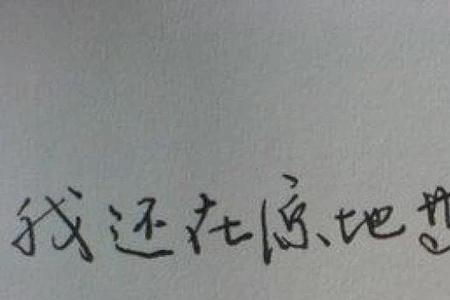 我还在原地